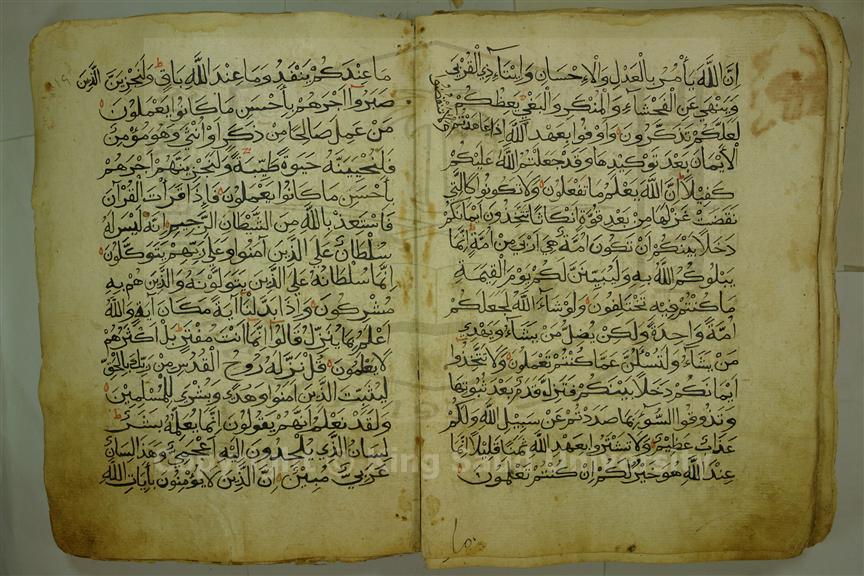 ان الله يأمر بالعدل والاحسان وايتآء ذي القربى
وينهى عن الفحشآء والمنكر والبغي يعظكم
لعلكم تذكرون واوفوا بعهد الله اذا عاهدتم
ولا تنقضوا
الايمان بعد توكيدها وقد جعلتم الله عليكم
كفيلا ان الله يعلم ما تفعلون ولا تكونوا كالتي
نقضت غزلها من بعد قوة انكاثا تتخذون ايمانكم
دخلا بينكم ان تكون امة هي اربى من امة انما
يبلوكم الله به وليبينن لكم يوم القيمة
ما كنتم فيه تختلفون ولو شآء الله لجعلكم
امة واحدة ولكن يضل من يشآء ويهدي
من يشآء ولتسئلن عما كنتم تعملون ولا تتخذوا
ايمانكم دخلا بينكم فتزل قدم بعد ثبوتها
وتذوقوا السوء بما صددتم عن سبيل الله ولكم
عذاب عظيم ولا تشتروا بعهد الله ثمنا قليلا انما
عند الله هو خير لكم ان كنتم تعلمون
ما عندكم ينفد وما عند الله باق ولنجزين الذين
صبروا اجرهم باحسن ما كانوا يعملون
من عمل صالحا من ذكر او انثى وهو مؤمن
فلنحيينه حيوة طيبة ولنجزينهم اجرهم
باحسن ما كانوا يعملون فاذا قرأت القرآن
فاستعذ بالله من الشيطان الرجيم انه ليس له
سلطان على الذين آمنوا وعلى ربهم يتوكلون
انما سلطانه على الذين يتولونه والذين هم به
مشركون واذا بدلنا آية مكان آية والله
اعلم بما ينزل قالوا انما انت مفتر بل اكثرهم
لا يعلمون قل نزله روح القدس من ربك بالحق
ليثبت الذين آمنوا وهدى وبشرى للمسلمين
ولقد نعلم انهم يقولون انما يعلمه بشر
لسان الذي يلحدون اليه اعجمي وهذا لسان
عربي مبين ان الذين لا يؤمنون بآيات الله